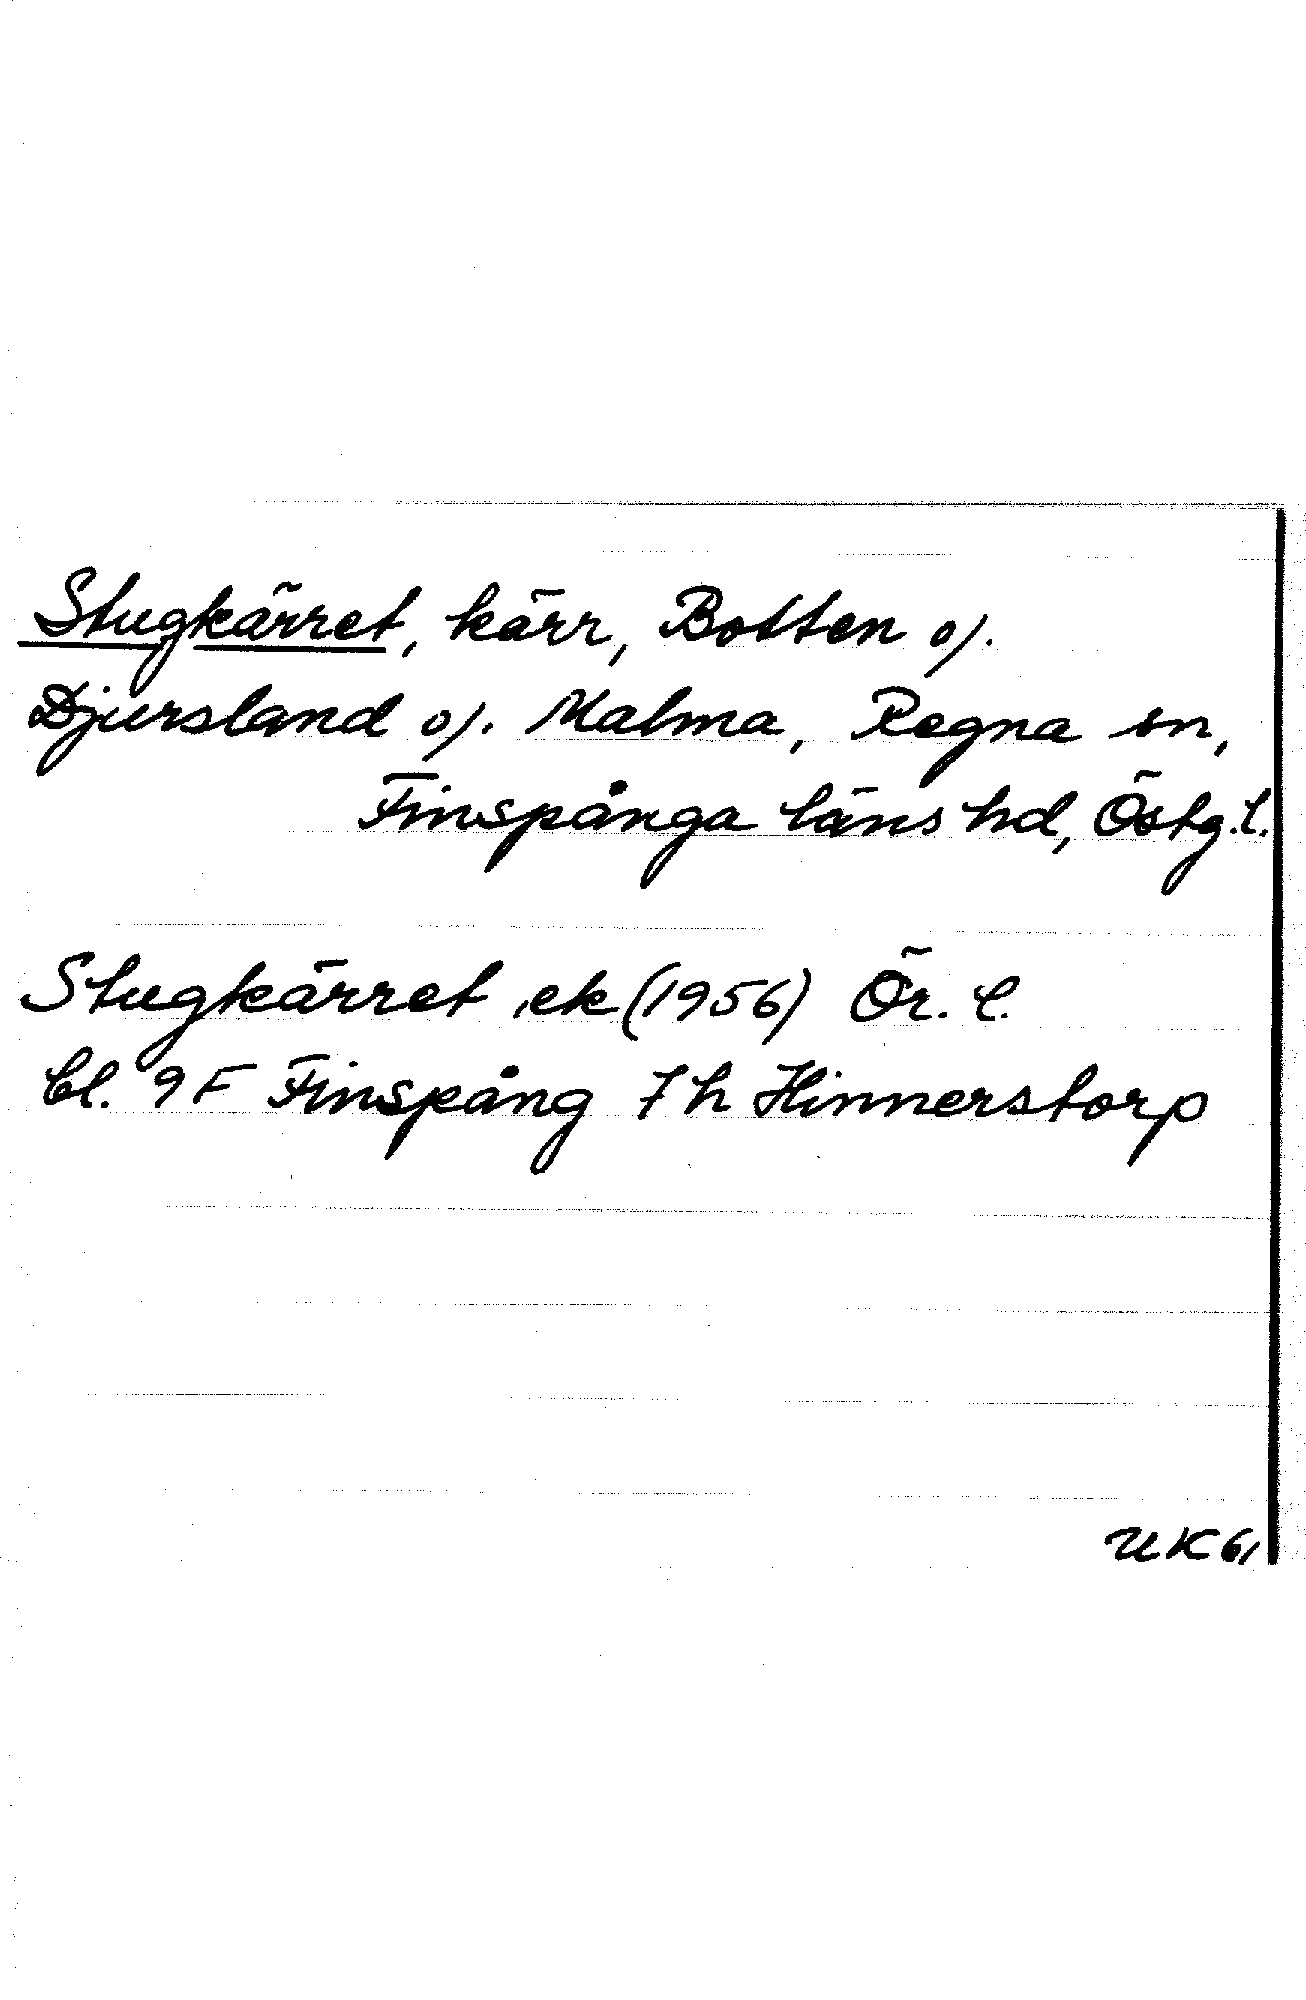 Stugkärret, kärr, Botten o/.
Djursland o/. Malma, Regna sn,
Finspånga läns hd, Östg.l.
Stugkärret, ek (1956) Ör. l.
bl. 9F Finspång 7h Hinnerstorp
UK 61